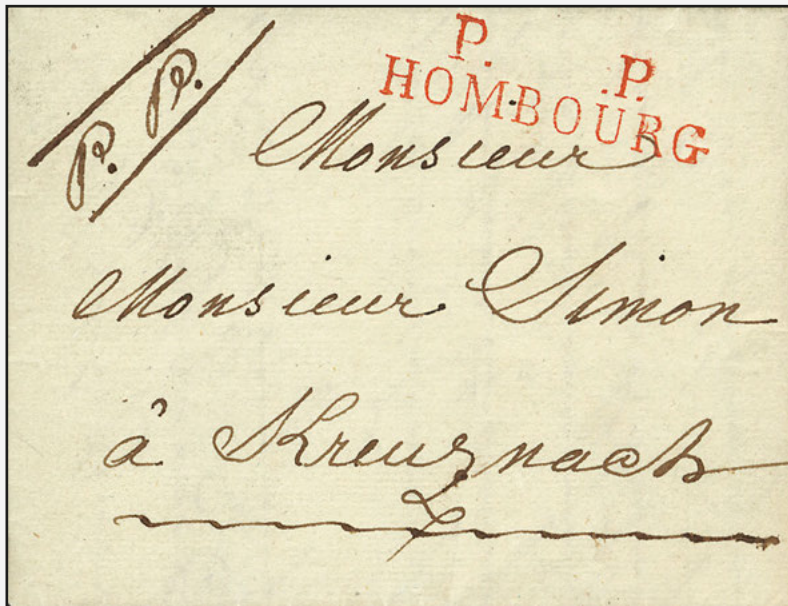 P. P.
P. P.
HOMBOURG
Monsieur
Monsieur Simon
à Kreuznach